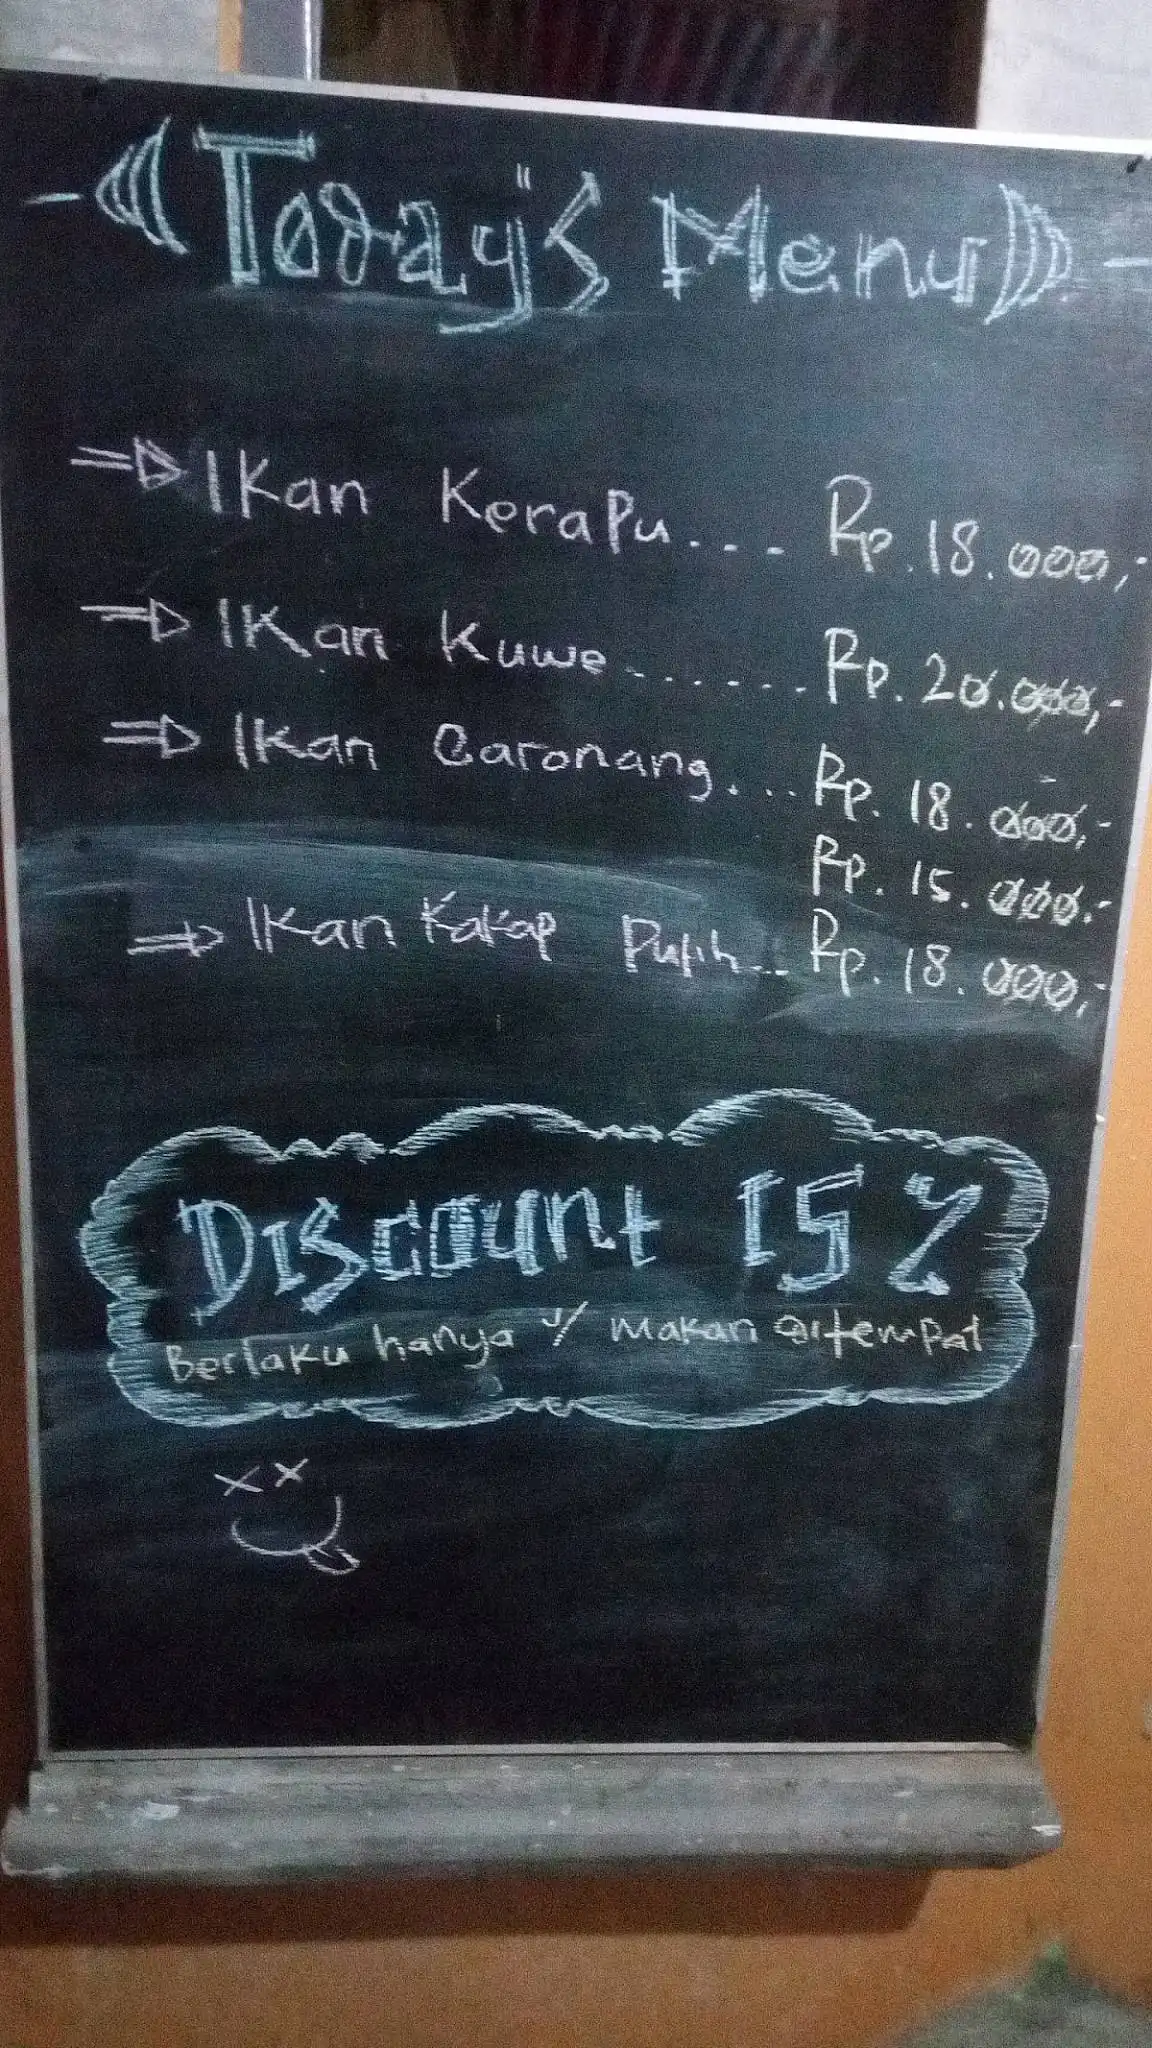 Today's Menu
Ikan Kerapu.... Rp. 18.000,-
Ikan Kuwe....... Rp. 20.000,-
Ikan Baronang.... Rp. 18.000,-
Rp. 15.000.-
Ikan Kakap Putih... Rp. 18.000,-
Discount 15 %
Berlaku hanya u/ makan ditempat